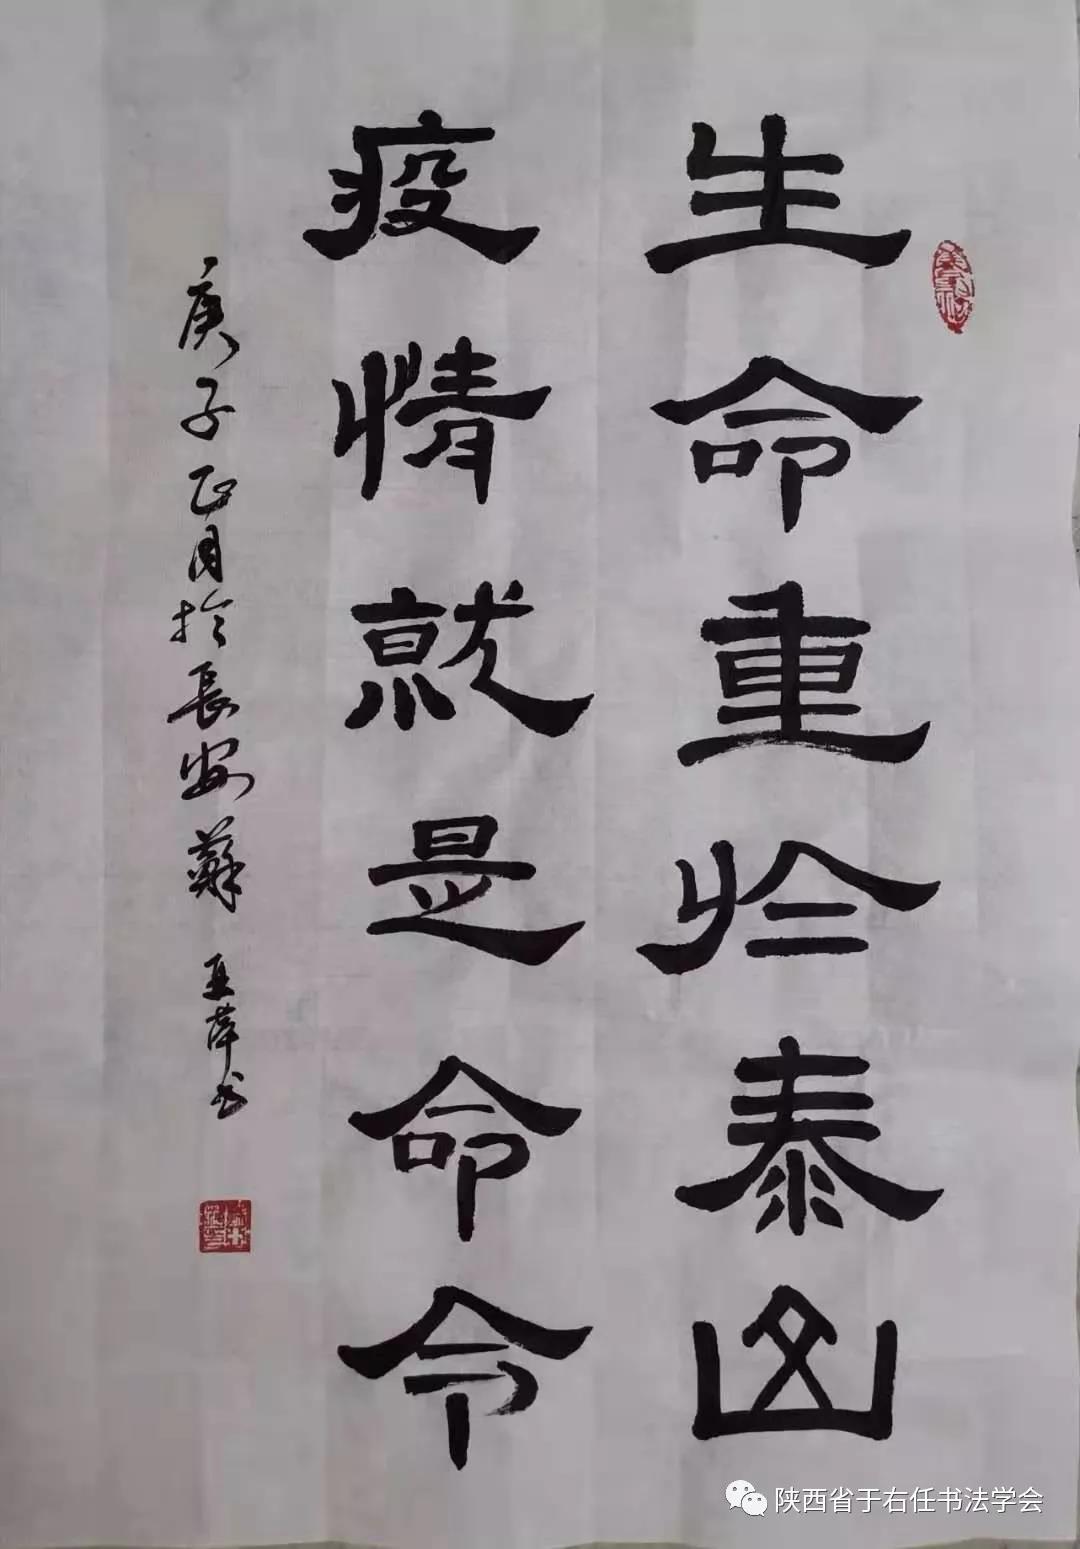 生命重於泰山
疫情就是命令
庚子正月於長安蘇亚萍书
陕西省于右任书法学会